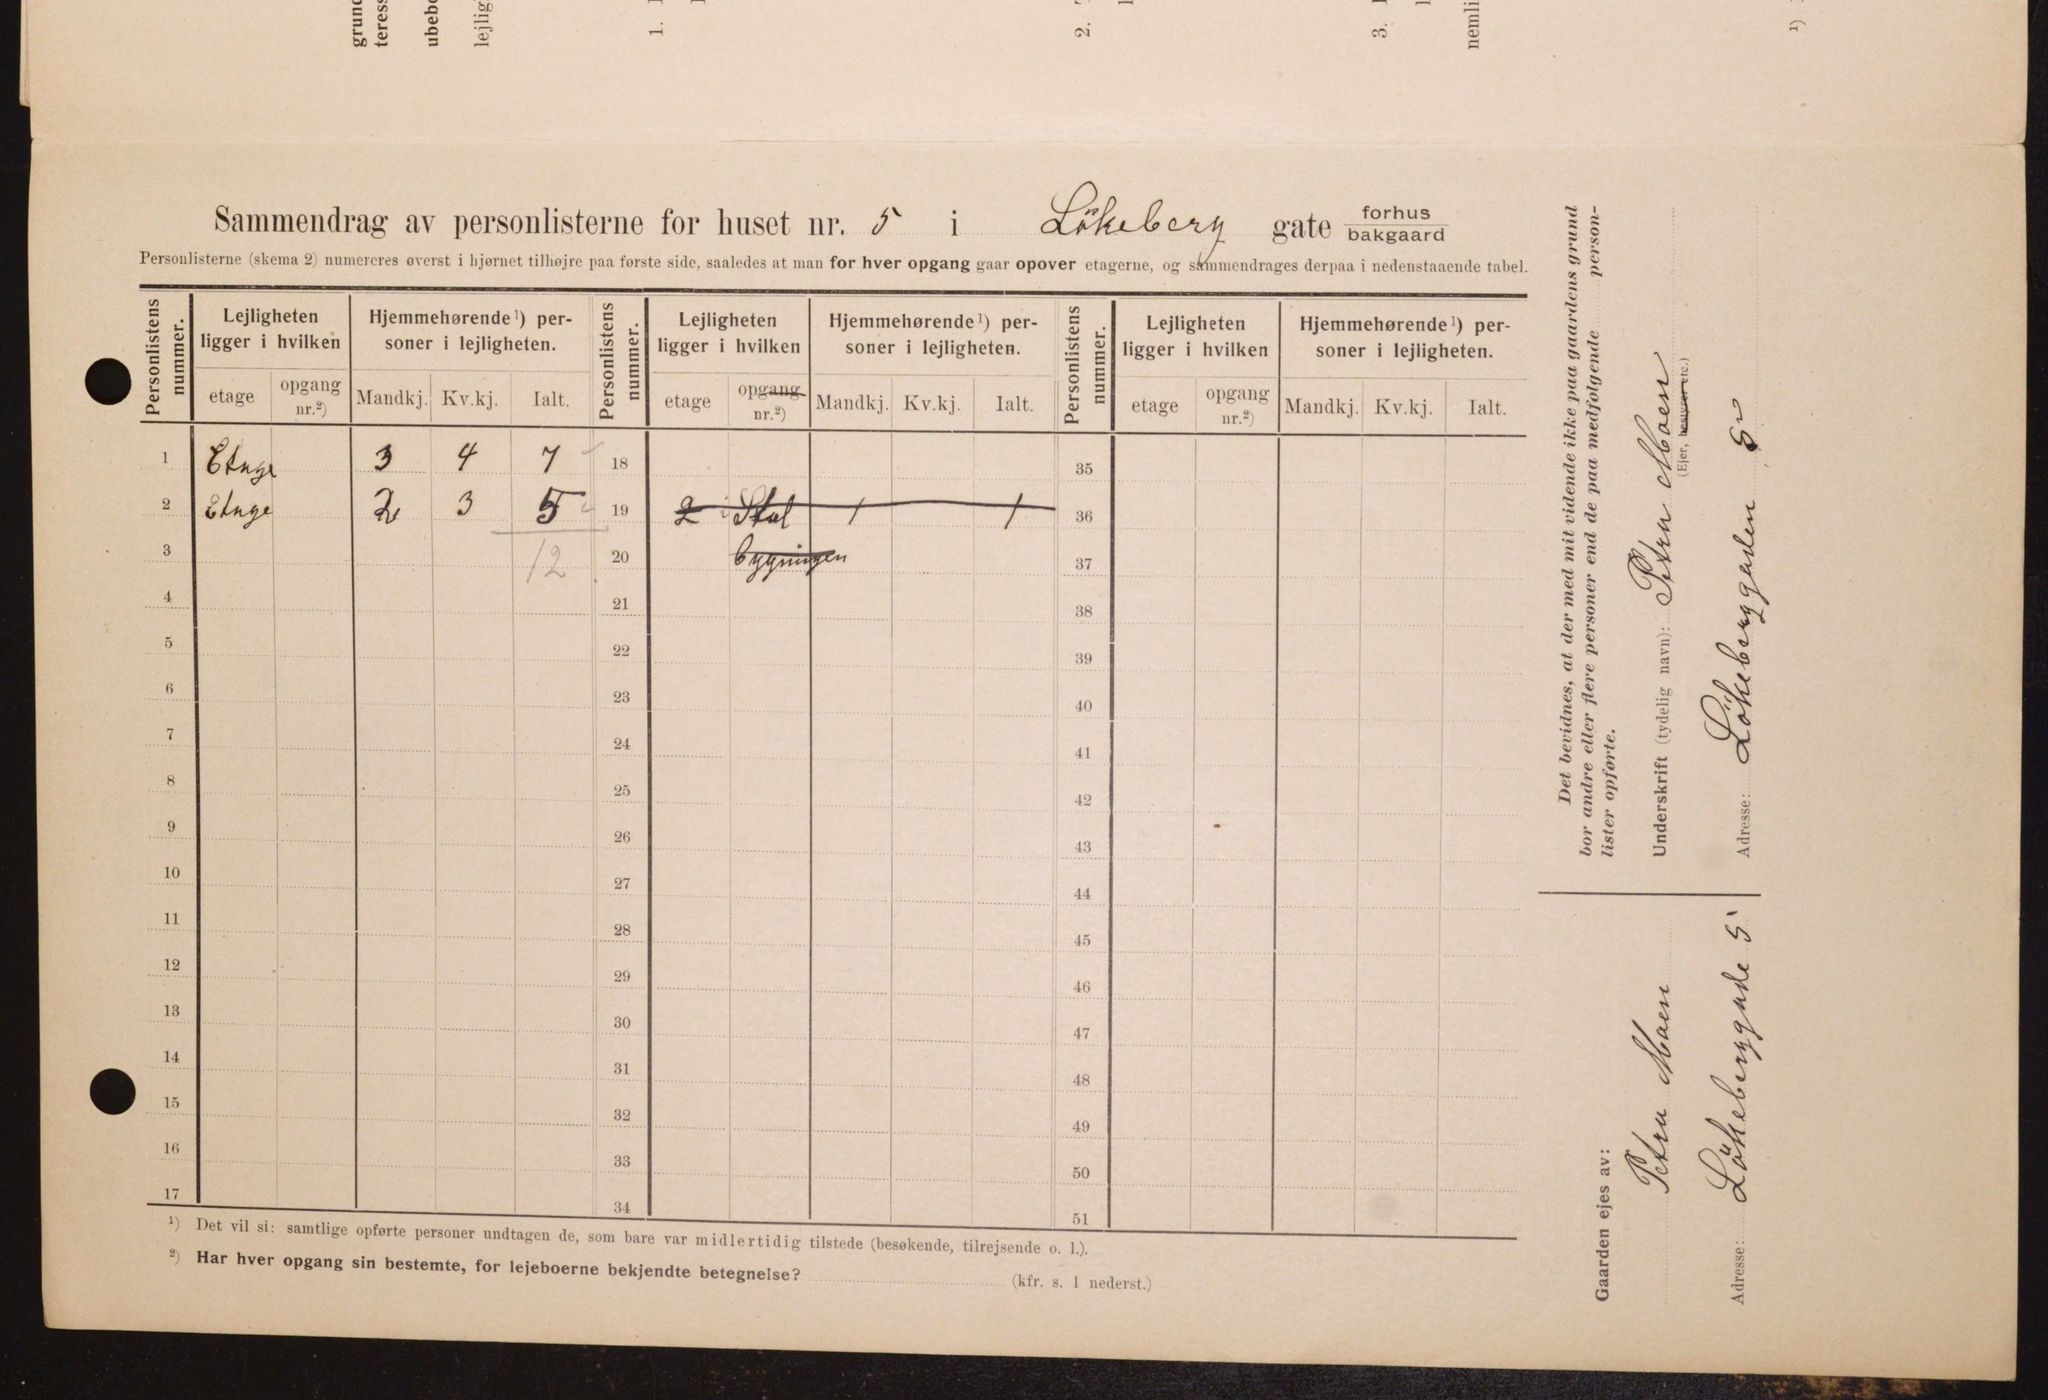 grund
teress
ubebo
lejlig
1.
2.
3.
nemli
1)
Sammendrag av personlisterne for huset nr. 5 i Lökeberg gate forhus bakgaard
Personlisterne (skema 2) numereres øverst i hjørnet tilhøjre paa første side, saaledes at man for hver opgang gaar opover etagerne, og sammendrages derpaa i nedenstaaende tabel.
Personlistens nummer. Lejligheten ligger i hvilken Hjemmehørende 1) personer i lejligheten. Personlistens nummer. Lejligheten ligger i hvilken Hjemmehørende 1) personer i lejligheten. Personlistens nummer. Lejligheten ligger i hvilken Hjemmehørende 1) personer i lejligheten.
etage opgang nr.2) Mandkj. Kv.kj. Ialt. etage opgang nr.2) Mandkj. Kv.kj. Ialt. etage opgang nr.2) Mandkj. Kv.kj. Ialt.
1 Etage 3 4 7 18 35
2 Etage 2 3 5 19 2 i Stal 1 1 36
3 12 20 bygningen 37
4 21 38
5 22 39
6 23 40
7 24 41
8 25 42
9 26 43
10 27 44
11 28 45
12 29 46
13 30 47
14 31 48
15 32 49
16 33 50
17 34 51
1) Det vil si: samtlige opførte personer undtagen de, som bare var midlertidig tilstede (besøkende, tilrejsende o. l.).
2) Har hver opgang sin bestemte, for lejeboerne bekjendte betegnelse? (kfr. s. 1 nederst.)
Det bevidnes, at der med mit vidende ikke paa gaardens grund
bor andre eller flere personer end de paa medfølgende person-
lister opførte.
Underskrift (tydelig navn): Petra Moen
(Ejer, bestyrer etc.)
Adresse: Lökeberggaden 5
Gaarden ejes av:
Petra Moen
Adresse: Lökeberggade 5